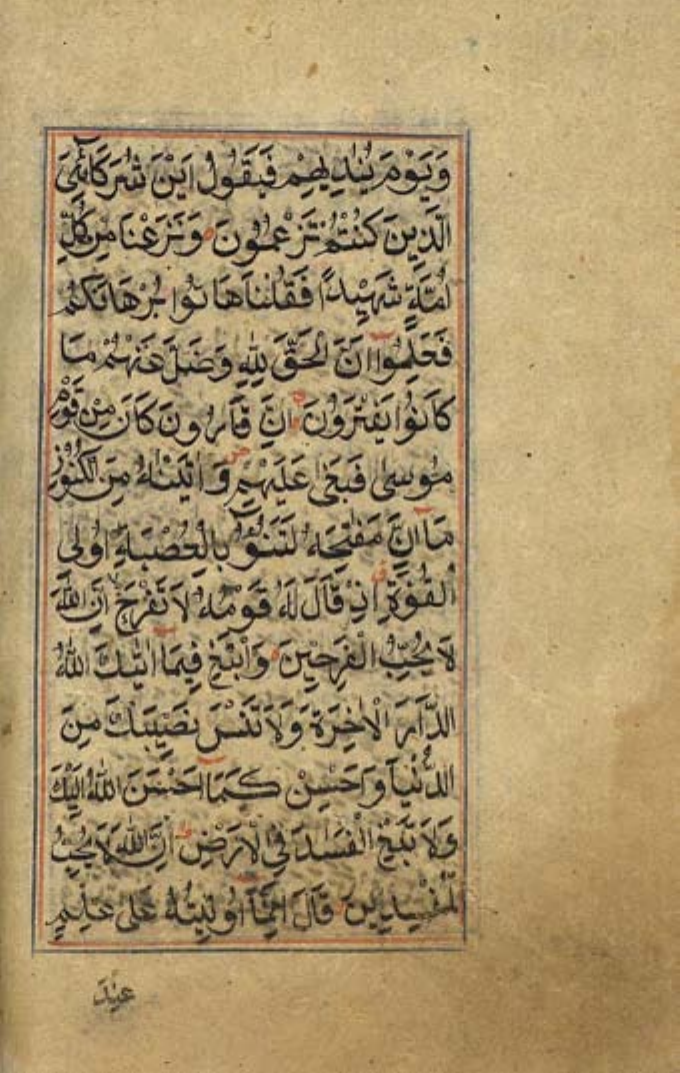 وَيَوْمَ يُنَادِيهِمْ فَيَقُولُ اَيْنَ شُرَكَآئِيَ
الَّذِينَ كُنْتُمْ تَزْعُمُونَ وَنَزَعْنَا مِنْ كُلِّ
اُمَّةٍ شَهِيْدًا فَقُلْنَا هَاتُوا بُرْهَانَكُمْ
فَعَلِمُوا اَنَّ الْحَقَّ لِلّٰهِ وَضَلَّ عَنْهُمْ مَا
كَانُوا يَفْتَرُونَ اِنَّ قَارُونَ كَانَ مِنْ قَوْمِ
مُوسٰى فَبَغٰى عَلَيْهِمْ وَاٰتَيْنٰهُ مِنَ الْكُنُوْزِ
مَا اِنَّ مَفَاتِحَهُ لَتَنُوْٓءُ بِالْعُصْبَةِ اُولِى
الْقُوَّةِ اِذْ قَالَ لَهُ قَوْمُهُ لَا تَفْرَحْ اِنَّ اللّٰهَ
لَا يُحِبُّ الْفَرِحِيْنَ وَابْتَغِ فِيمَا اٰتٰىكَ اللّٰهُ
الدَّارَ الْاٰخِرَةَ وَلَا تَنْسَ نَصِيْبَكَ مِنَ
الدُّنْيَا وَاَحْسِنْ كَمَا اَحْسَنَ اللّٰهُ اِلَيْكَ
وَلَا تَبْغِ الْفَسَادَ فِي الْاَرْضِ اِنَّ اللّٰهَ لَا يُحِبُّ
الْمُفْسِدِيْنَ قَالَ اِنَّمَا اُوتِيْتُهُ عَلٰى عِلْمٍ
عِنْدِ